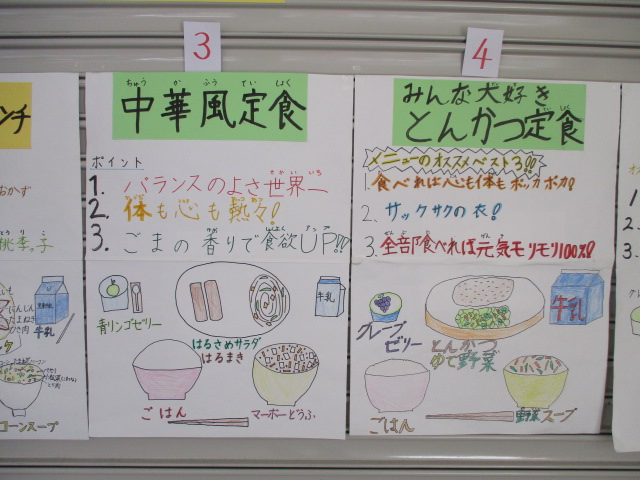 3
ちゅう か ふう てい しょく
中華風定食
ポイント
1. バランスのよさ世界一
せかいいち
2. 体も心も熱々!
3. ごまの香りで食欲UP!!!
牛乳
青リンゴゼリー
はるさめサラダ
はるまき
ごはん
マーボーどうふ
4
みんな大好き
とんかつ定食
メニューのオススメベスト3!!
1. 食べれば心も体もポッカポカ!
2. サックサクの衣!
3. 全部食べれば元気モリモリ100%!
牛乳
グレープ
ゼリー
とんかつ
ゆで野菜
ごはん
野菜スープ
ンチ
おかず
にんじん
たまねぎ
牛乳
コーンスープ
1.
2.
3.